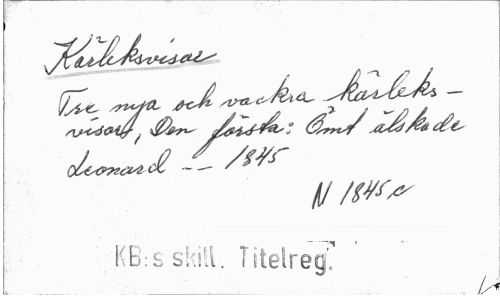 Kärleksvisor
Tre nya och vackra kärleks-
visor, Den första: Ömt älskade
Leonard -- 1845
N 1845 c
KB:s skill. Titelreg.